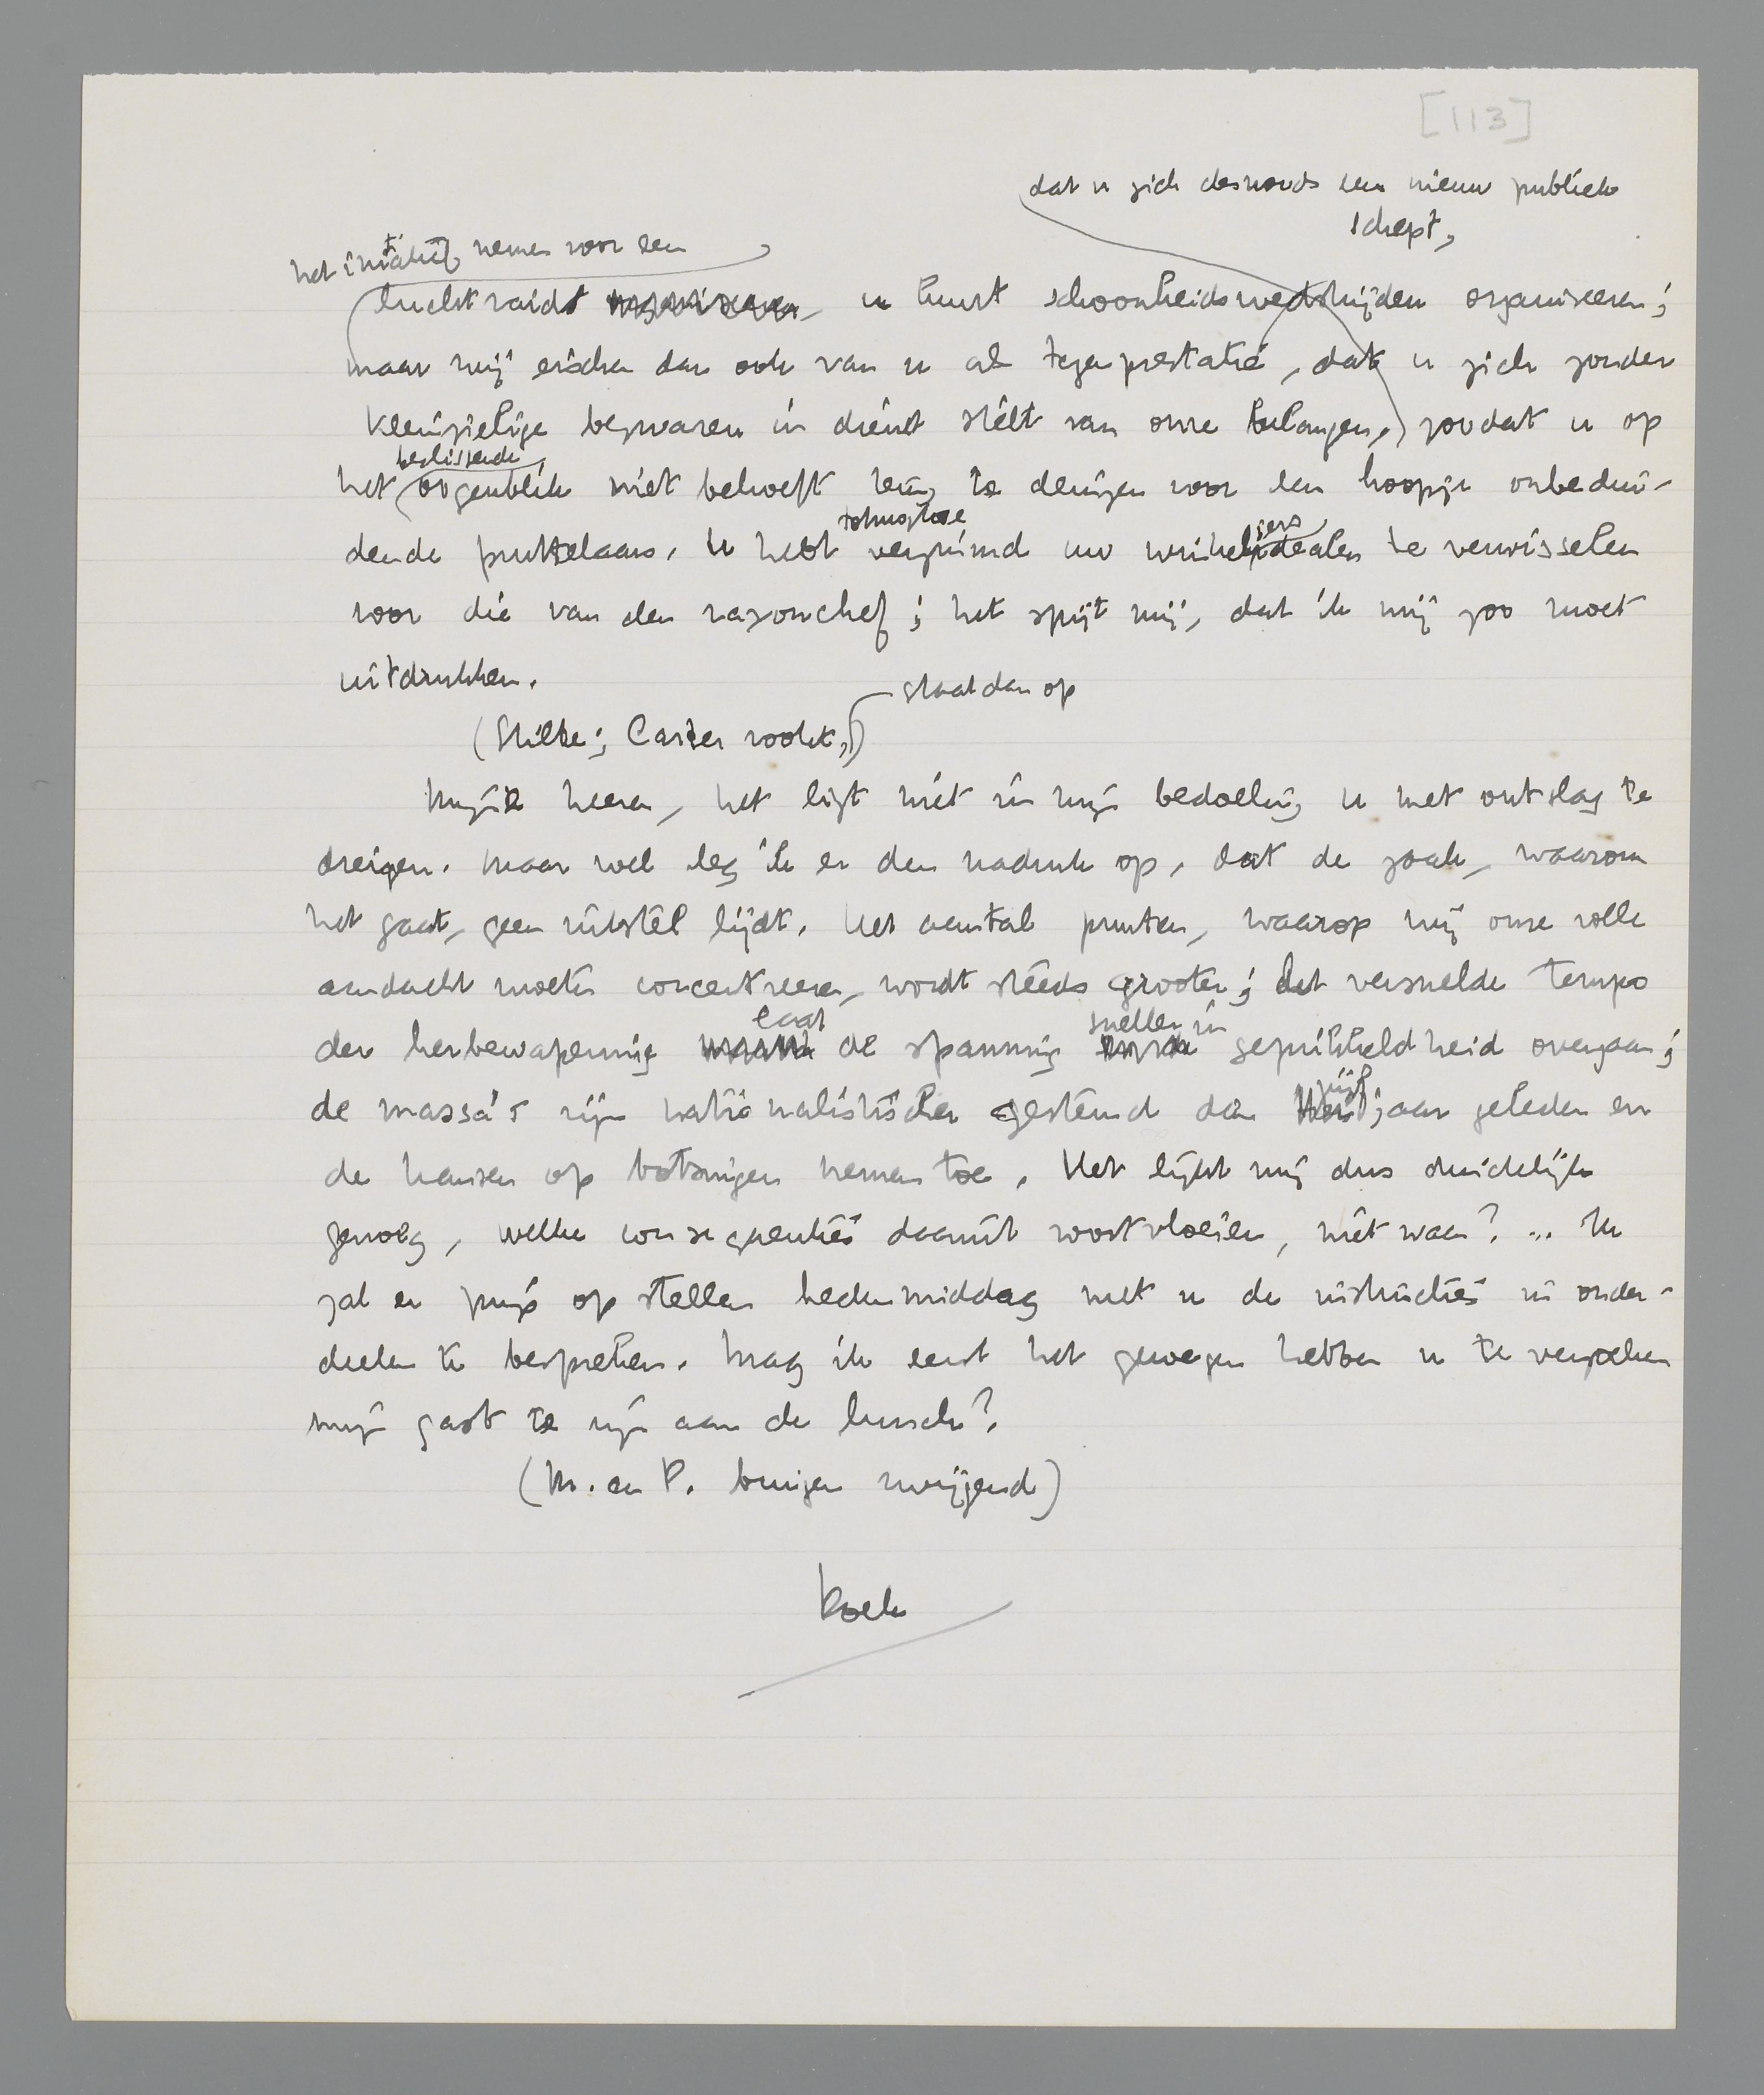 [113]
dat u zich desnoods een nieuw publiek
schept,
het initiatief nemen voor een
luchtraids organiseren, u kunt schoonheidswedstrijden organiseren;
maar wij eischen dan ook van u als tegenprestatie, dat u zich zonder
kleinzielige bezwaren in dienst stelt van onze belangen, zoodat u op
beslissende
het oogenblik niet behoeft terug te deinzen voor een hoopje onbedui-
dende pruttelaars. U hebt verzuimd uw winkeliersidealen te verwisselen
tot nog toe
voor die van den rayonchef; het spijt mij, dat ik mij zoo moet
uitdrukken.
staat dan op
(Stilte; Carter rookt,)
Mijne heeren, het ligt niet in mijn bedoeling u met ontslag te
dreigen. Maar wel leg ik er den nadruk op, dat de zaak, waarom
het gaat, geen uitstel lijdt. Het aantal punten, waarop wij onze volle
aandacht moeten concentreeren, wordt steeds grooter; het versnelde tempo
laat sneller in
der herbewapening de spanning geprikkeldheid overgaan;
vijf
de massa's zijn nationalistischer gestemd dan jaar geleden en
de kansen op botsingen nemen toe. Het lijkt mij dus duidelijk
genoeg, welke consequenties daaruit voortvloeien, niet waar? ... Ik
zal er prijs op stellen hedenmiddag met u de instructies in onder-
deelen te bespreken. Mag ik eerst het genoegen hebben u te verzoeken
mijn gast te zijn aan de lunch?
(M. en P. buigen zwijgend)
Doek